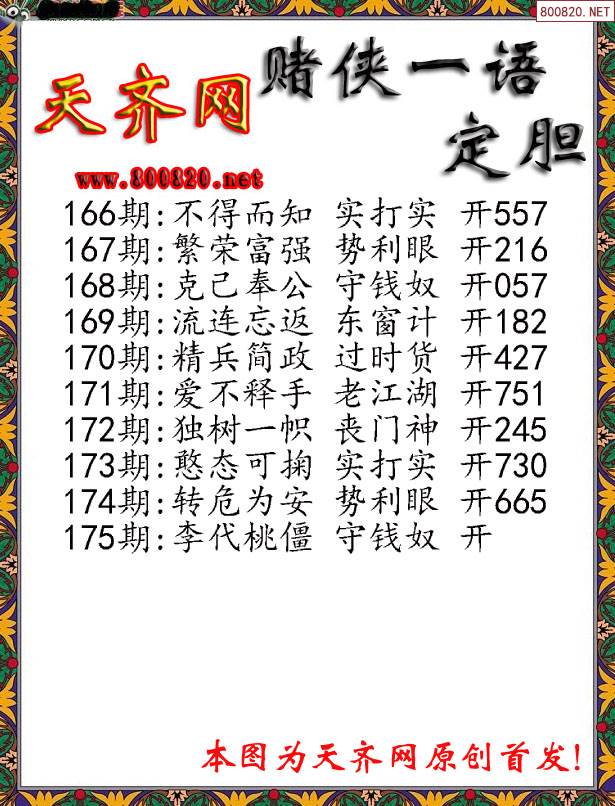 800820.NET
天齐网
赌侠一语
定胆
www.800820.net
166期:不得而知 实打实 开557
167期:繁荣富强 势利眼 开216
168期:克己奉公 守钱奴 开057
169期:流连忘返 东窗计 开182
170期:精兵简政 过时货 开427
171期:爱不释手 老江湖 开751
172期:独树一帜 丧门神 开245
173期:憨态可掬 实打实 开730
174期:转危为安 势利眼 开665
175期:李代桃僵 守钱奴 开
本图为天齐网原创首发!